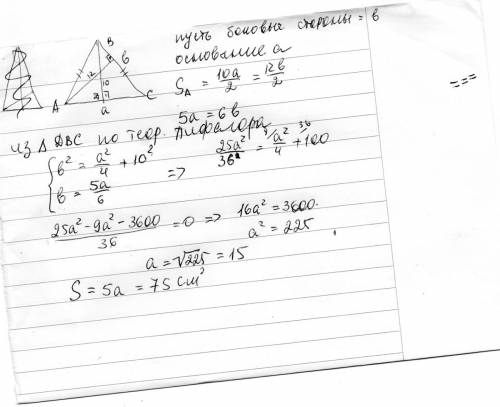 пусть боковые стороны = b
основание a
S△ = 10a/2 = 12b/2
5a = 6b
B
12
b
10
A
a
C
из △ DBC по теор. Пифагора
{ b² = a²/4 + 10²
b = 5a/6
=> 25a²/36 = a²/4 + 100
(25a² - 9a² - 3600)/36 = 0 => 16a² = 3600.
a² = 225
a = √225 = 15
S = 5a = 75 см²